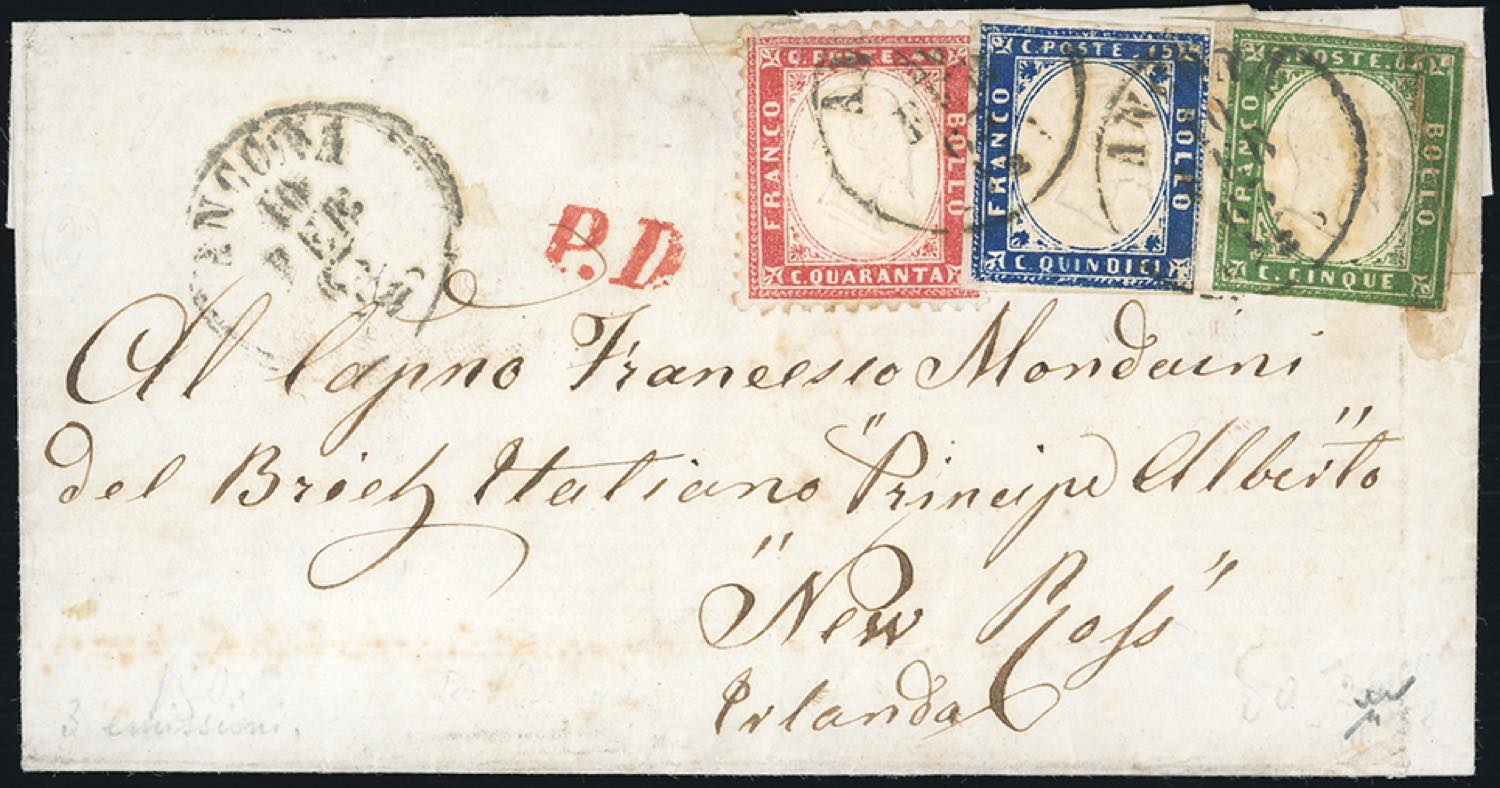 C. POSTE
FRANCO
BOLLO
C. QUARANTA
C. POSTE. 15
FRANCO
BOLLO
C QUINDICI
C. POSTE.
FRANCO
BOLLO
C. CINQUE
ANCONA
10
P.D
Al Capno Francesco Mondaini
del Brich Italiano "Principe Alberto"
"New Ross"
Irlanda
3 emissioni.